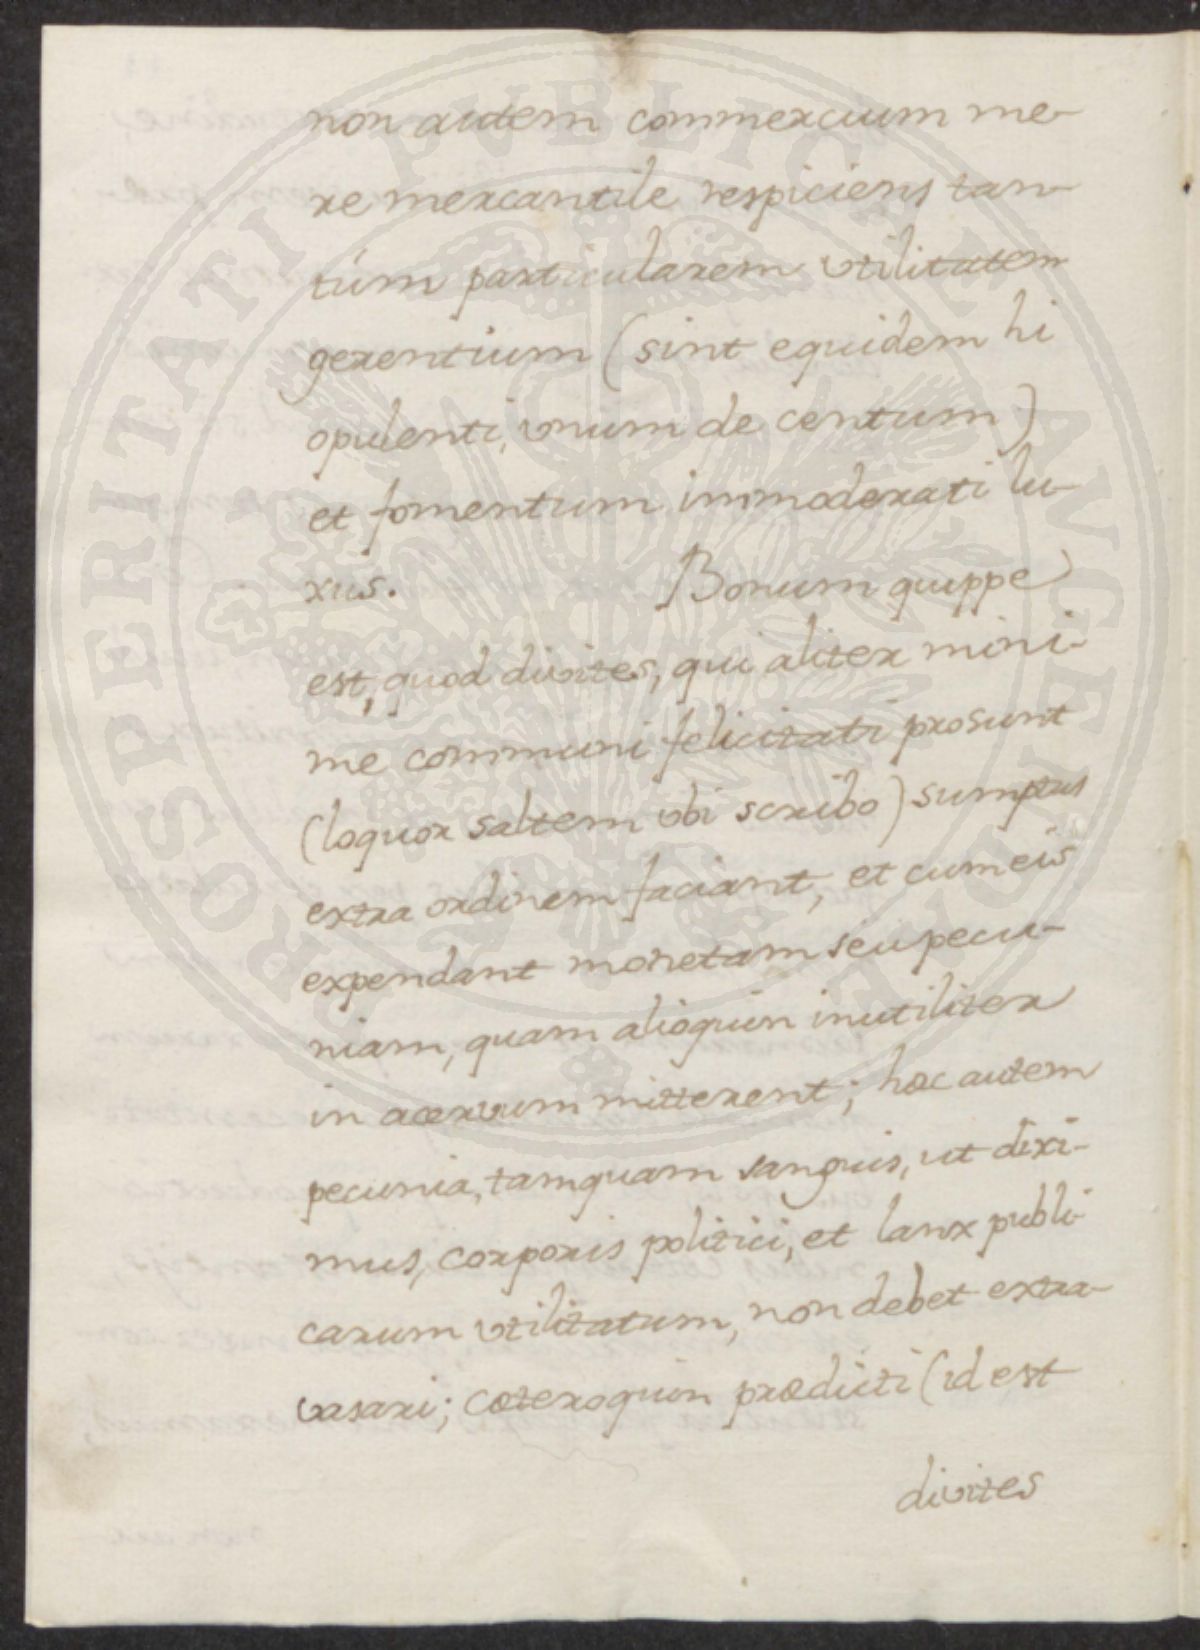 non autem commercium me-
re mercantile respiciens tan-
túm particularem vtilitatem
gerentium (sint equidem hi
opulenti, vnum de centum)
et fomentum immoderati lu-
xus. Bonum quippe
est, quod divites, qui aliter mini-
me communi felicitati prosunt
(loquor saltem vbi scribo) sumptus
extra ordinem faciant, et cum eis
expendant monetam seu pecu-
niam, quam alioquin inutiliter
in acervum mitterent; hæc autem
pecunia, tamquam sanguis, ut dixi-
mus, corporis politici, et lanx publi-
carum vtilitatum, non debet extra-
vasari; cœteroquin prædicti (id est
divites
PROSPERITATI PVBLICÆ AVGENDÆ